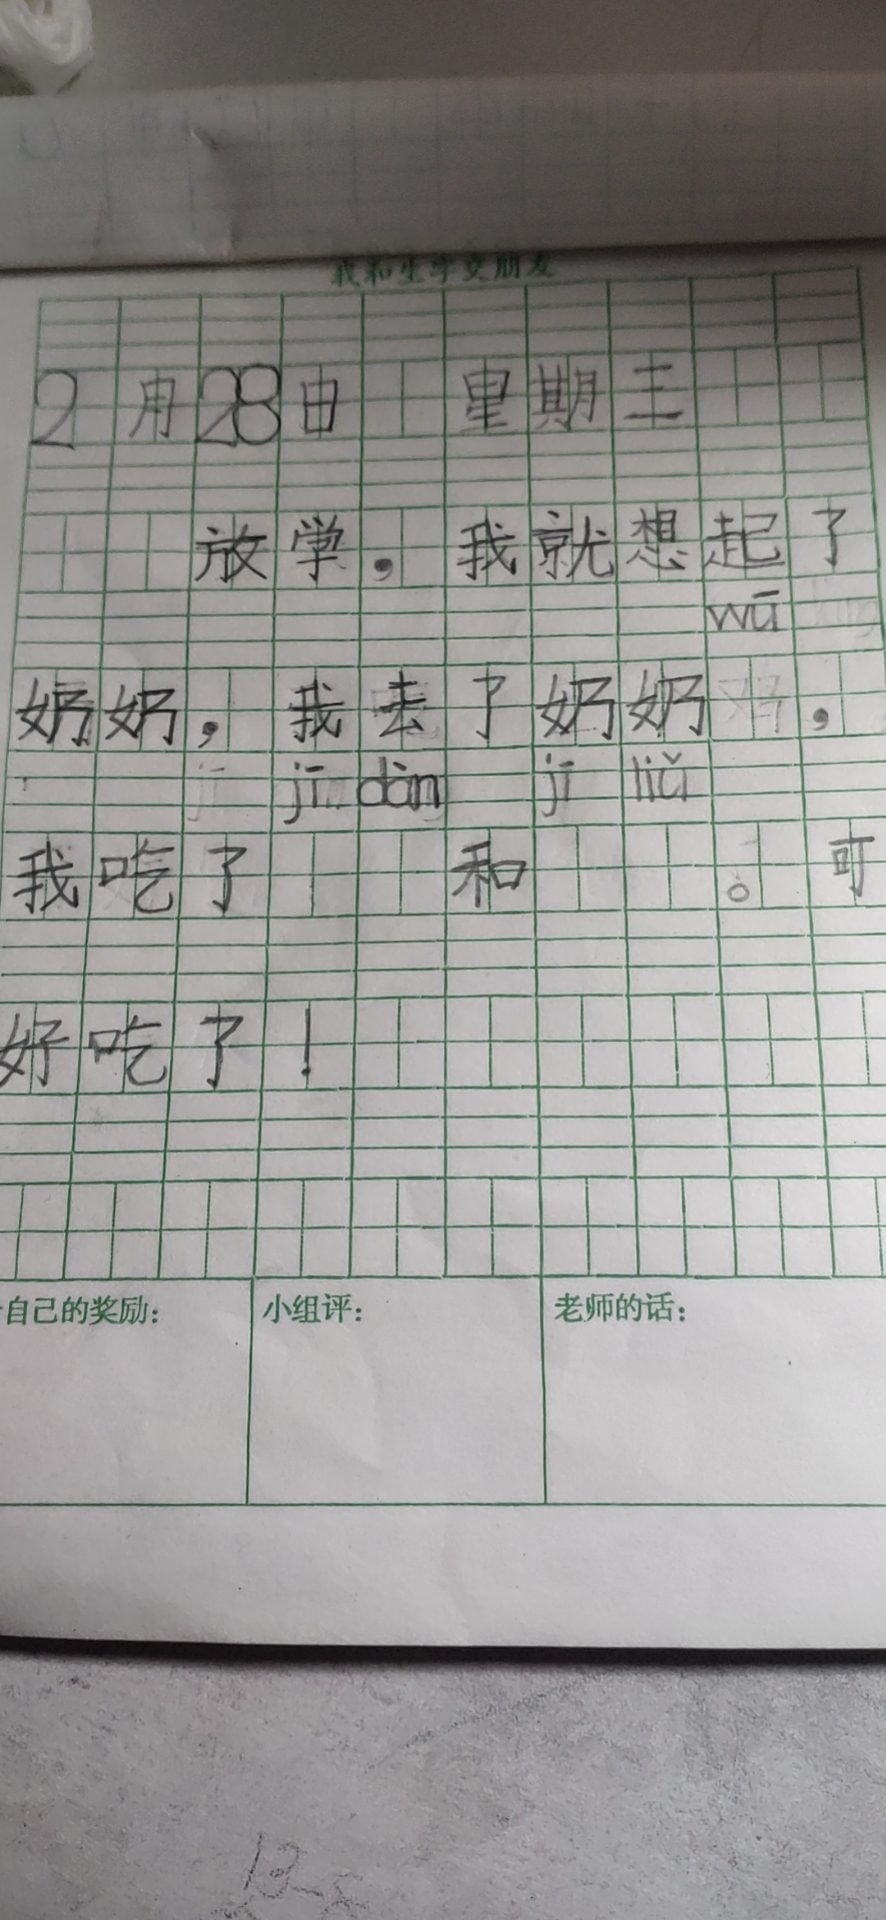 我和生字交朋友
2月28日 星期三
放学，我就想起了
wū
奶奶，我去了奶奶，
jī dàn jī liǔ
我吃了 和 。可
好吃了！
自己的奖励： 小组评： 老师的话：